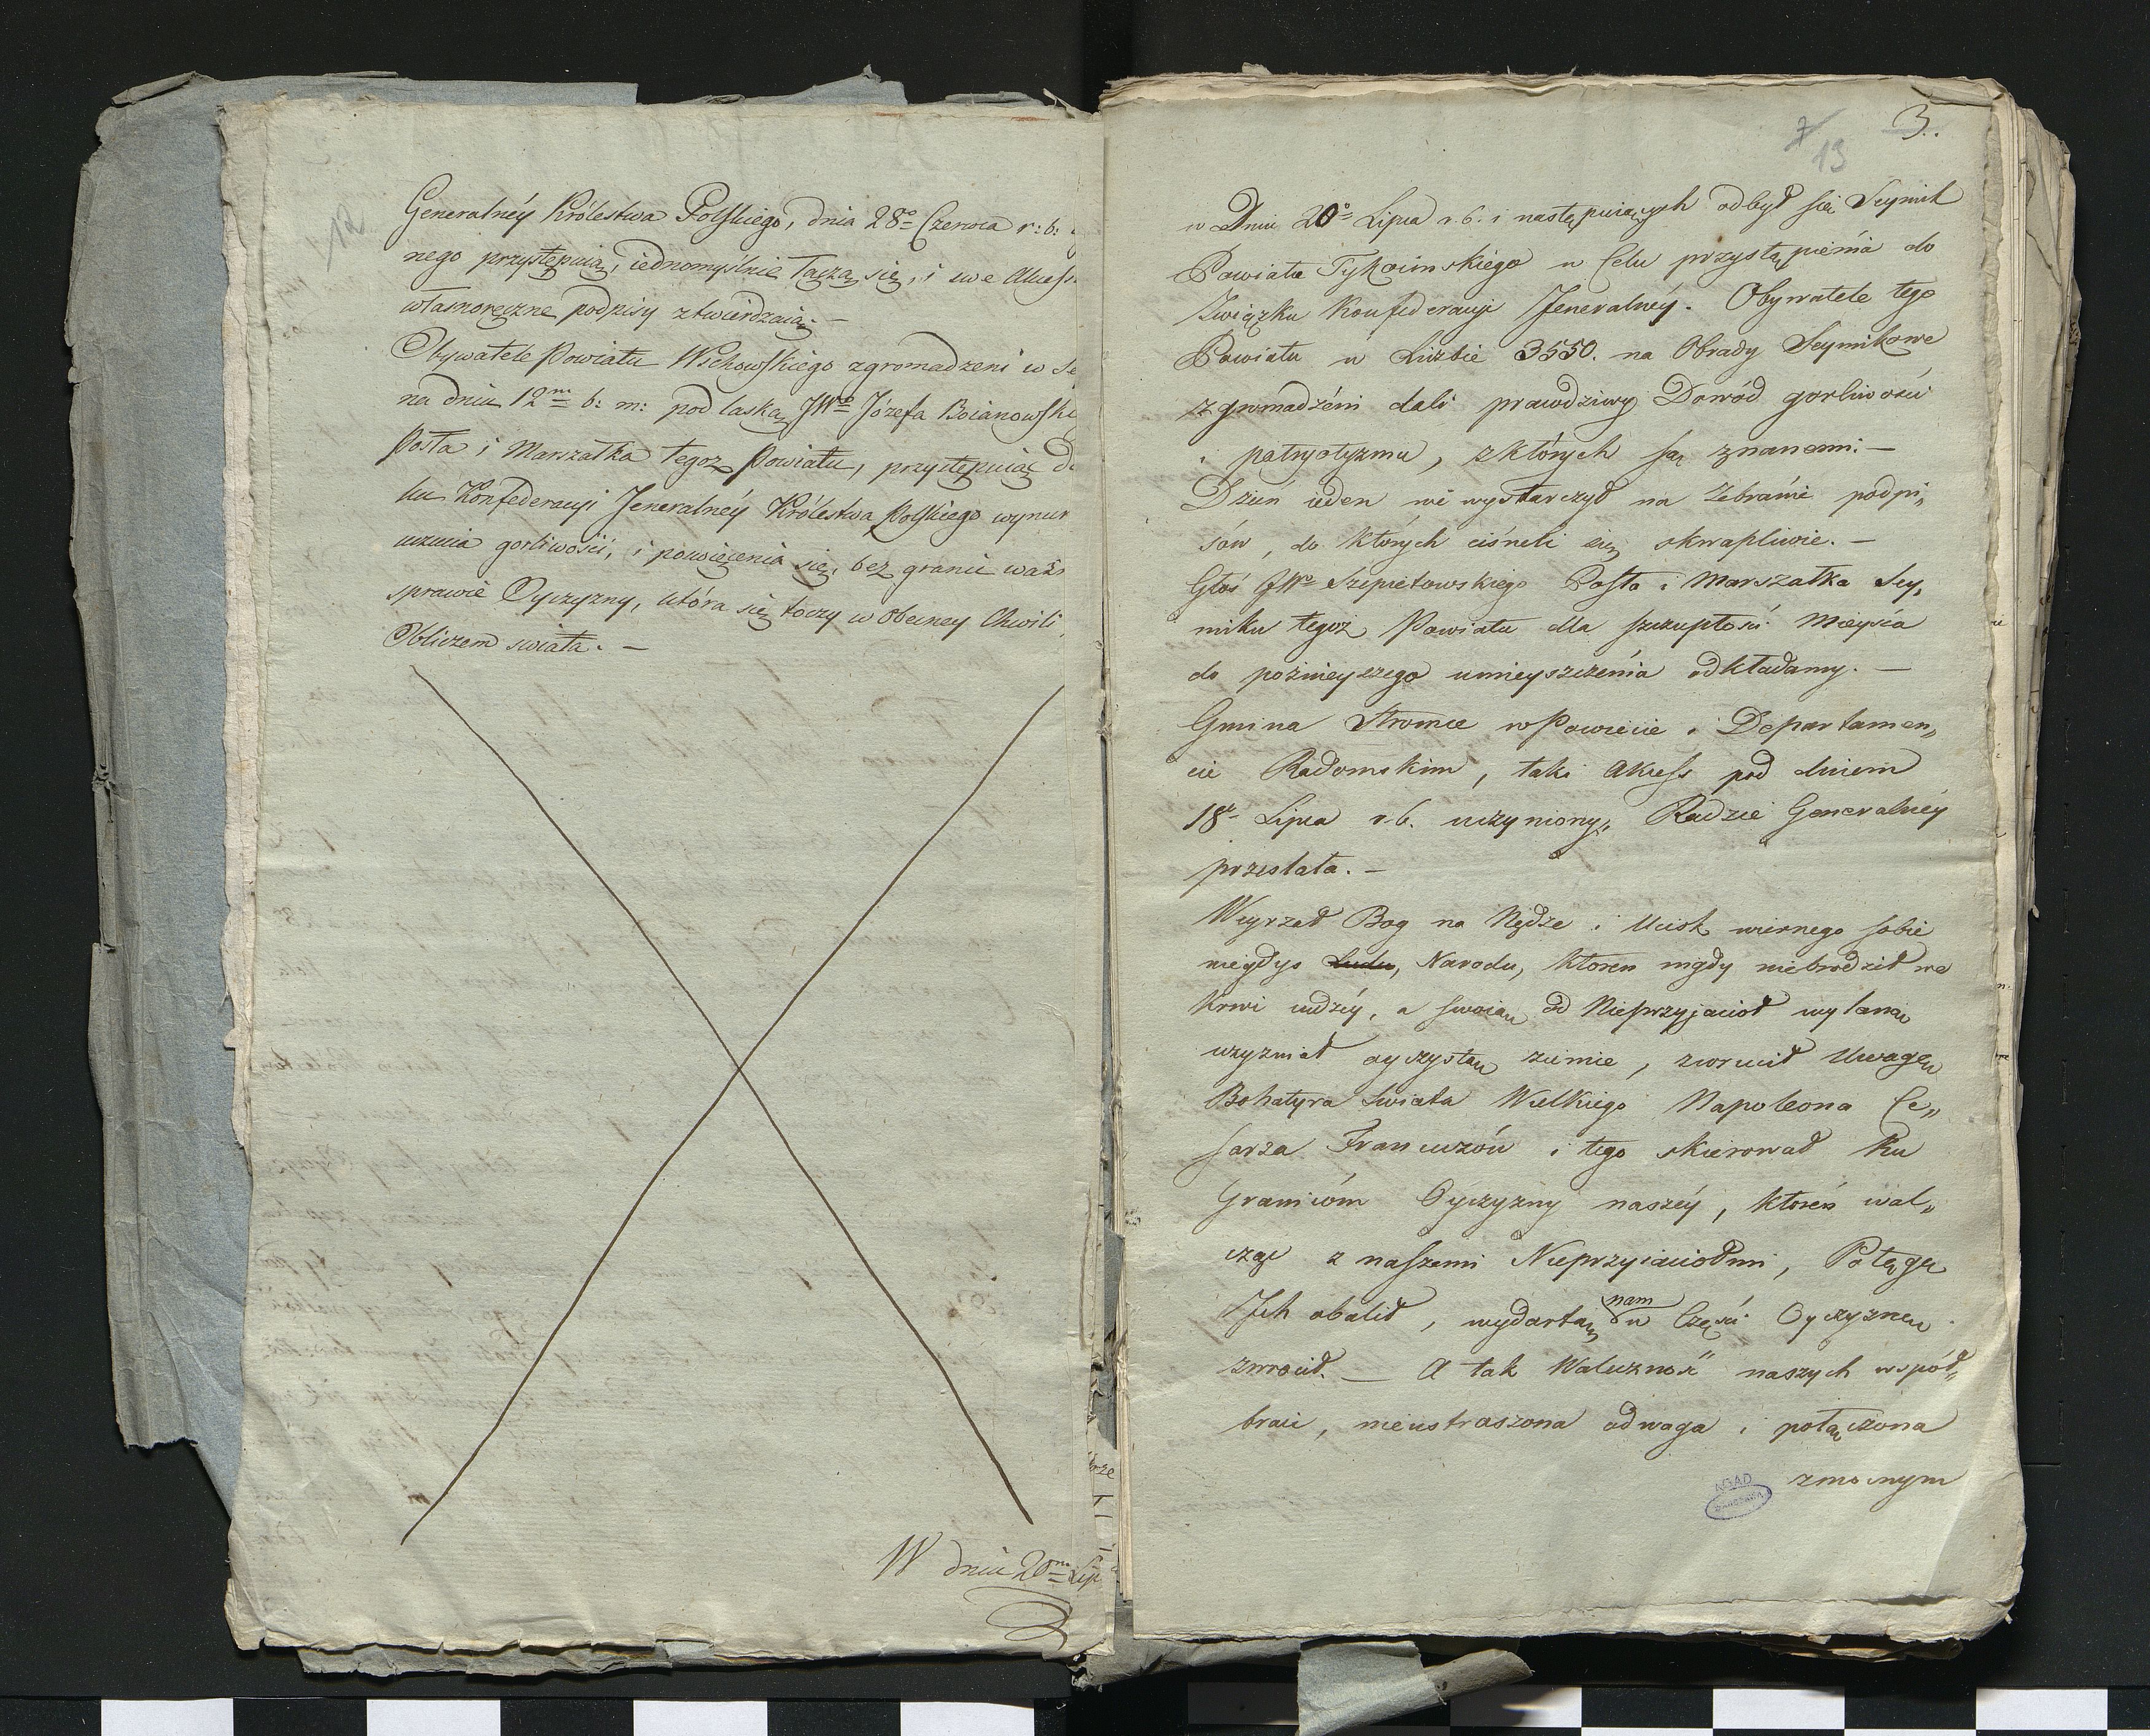 12
Generalnéy Królestwa Polskiego, dnia 28º Czerwca r: b:
nego przystępuią, iednomyślnie łączą się, i swe Akcess
własnoręczne podpisy ztwierdzaią. —
Obywatele Powiatu Wschowskiego zgromadzeni w Se
na dniu 12m b: m: pod laską JWo Józefa Boianowski
Posła i Marszałka tegoż Powiatu, przystępuiąc d
ku Konfederacyi Jeneralnéy Królestwa Polskiego wynur
uczucia gorliwości, i poswięcenia się, bez granic waż
sprawie Oyczyzny, która się toczy w obecney Chwili
Obliczem swiata. —
W dniu 20m Lip
3.
7
13
w Dniu 20º Lipca r. b. i następuiących odbył się Seymik
Powiatu Tykocinskiego w Celu przystąpienia do
Związku Konfederacyi Jeneralnéy. Obywatele tego
Powiatu w Liczbie 3550. na Obrady Seymikowe
zgromadzéni dali prawdziwy Dowód gorliwości
i patryotyzmu, z których są znanemi. —
Dzień ieden nie wystarczył na Zebranie podpi„
sów, do których cisneli się skwapliwie. —
Głos JWo Szepietowskiego Posła i Marszałka Sey„
miku tegoż Powiatu dla szczupłości Mieysca
do poznieyszego umieyszczenia odkładamy. —
Gmina Stromiec w Powiecie i Departamen„
cie Radomskim, taki Akcess pod dniem
18º Lipca r. b. uczyniony, Radzie Generalnéy
przesłała. —
Weyrzał Bog na Nędze i Ucisk wiernego sobie
niegdys Ludu, Narodu, ktoren nigdy niebrodził we
Krwi cudzéy, a swoią od Nieprzyjacioł wylaną
uzyzniał oyczystą ziemie, zwrucił Uwagę
Bohatyra Swiata Wielkiego Napoleona Ce„
sarza Francuzów i tego skierował ku
Granicóm Oyczyzny naszéy, ktoren wal„
cząc z naszemi Nieprzyiaciołmi, Potęgę
Jch obalił, wydartą nam w Części Oyczyznę
zwrocił. — A tak Waleczność naszych współ„
braci, nieustraszona odwaga i połączona
zmocnym
AGAD
WARSZAWA